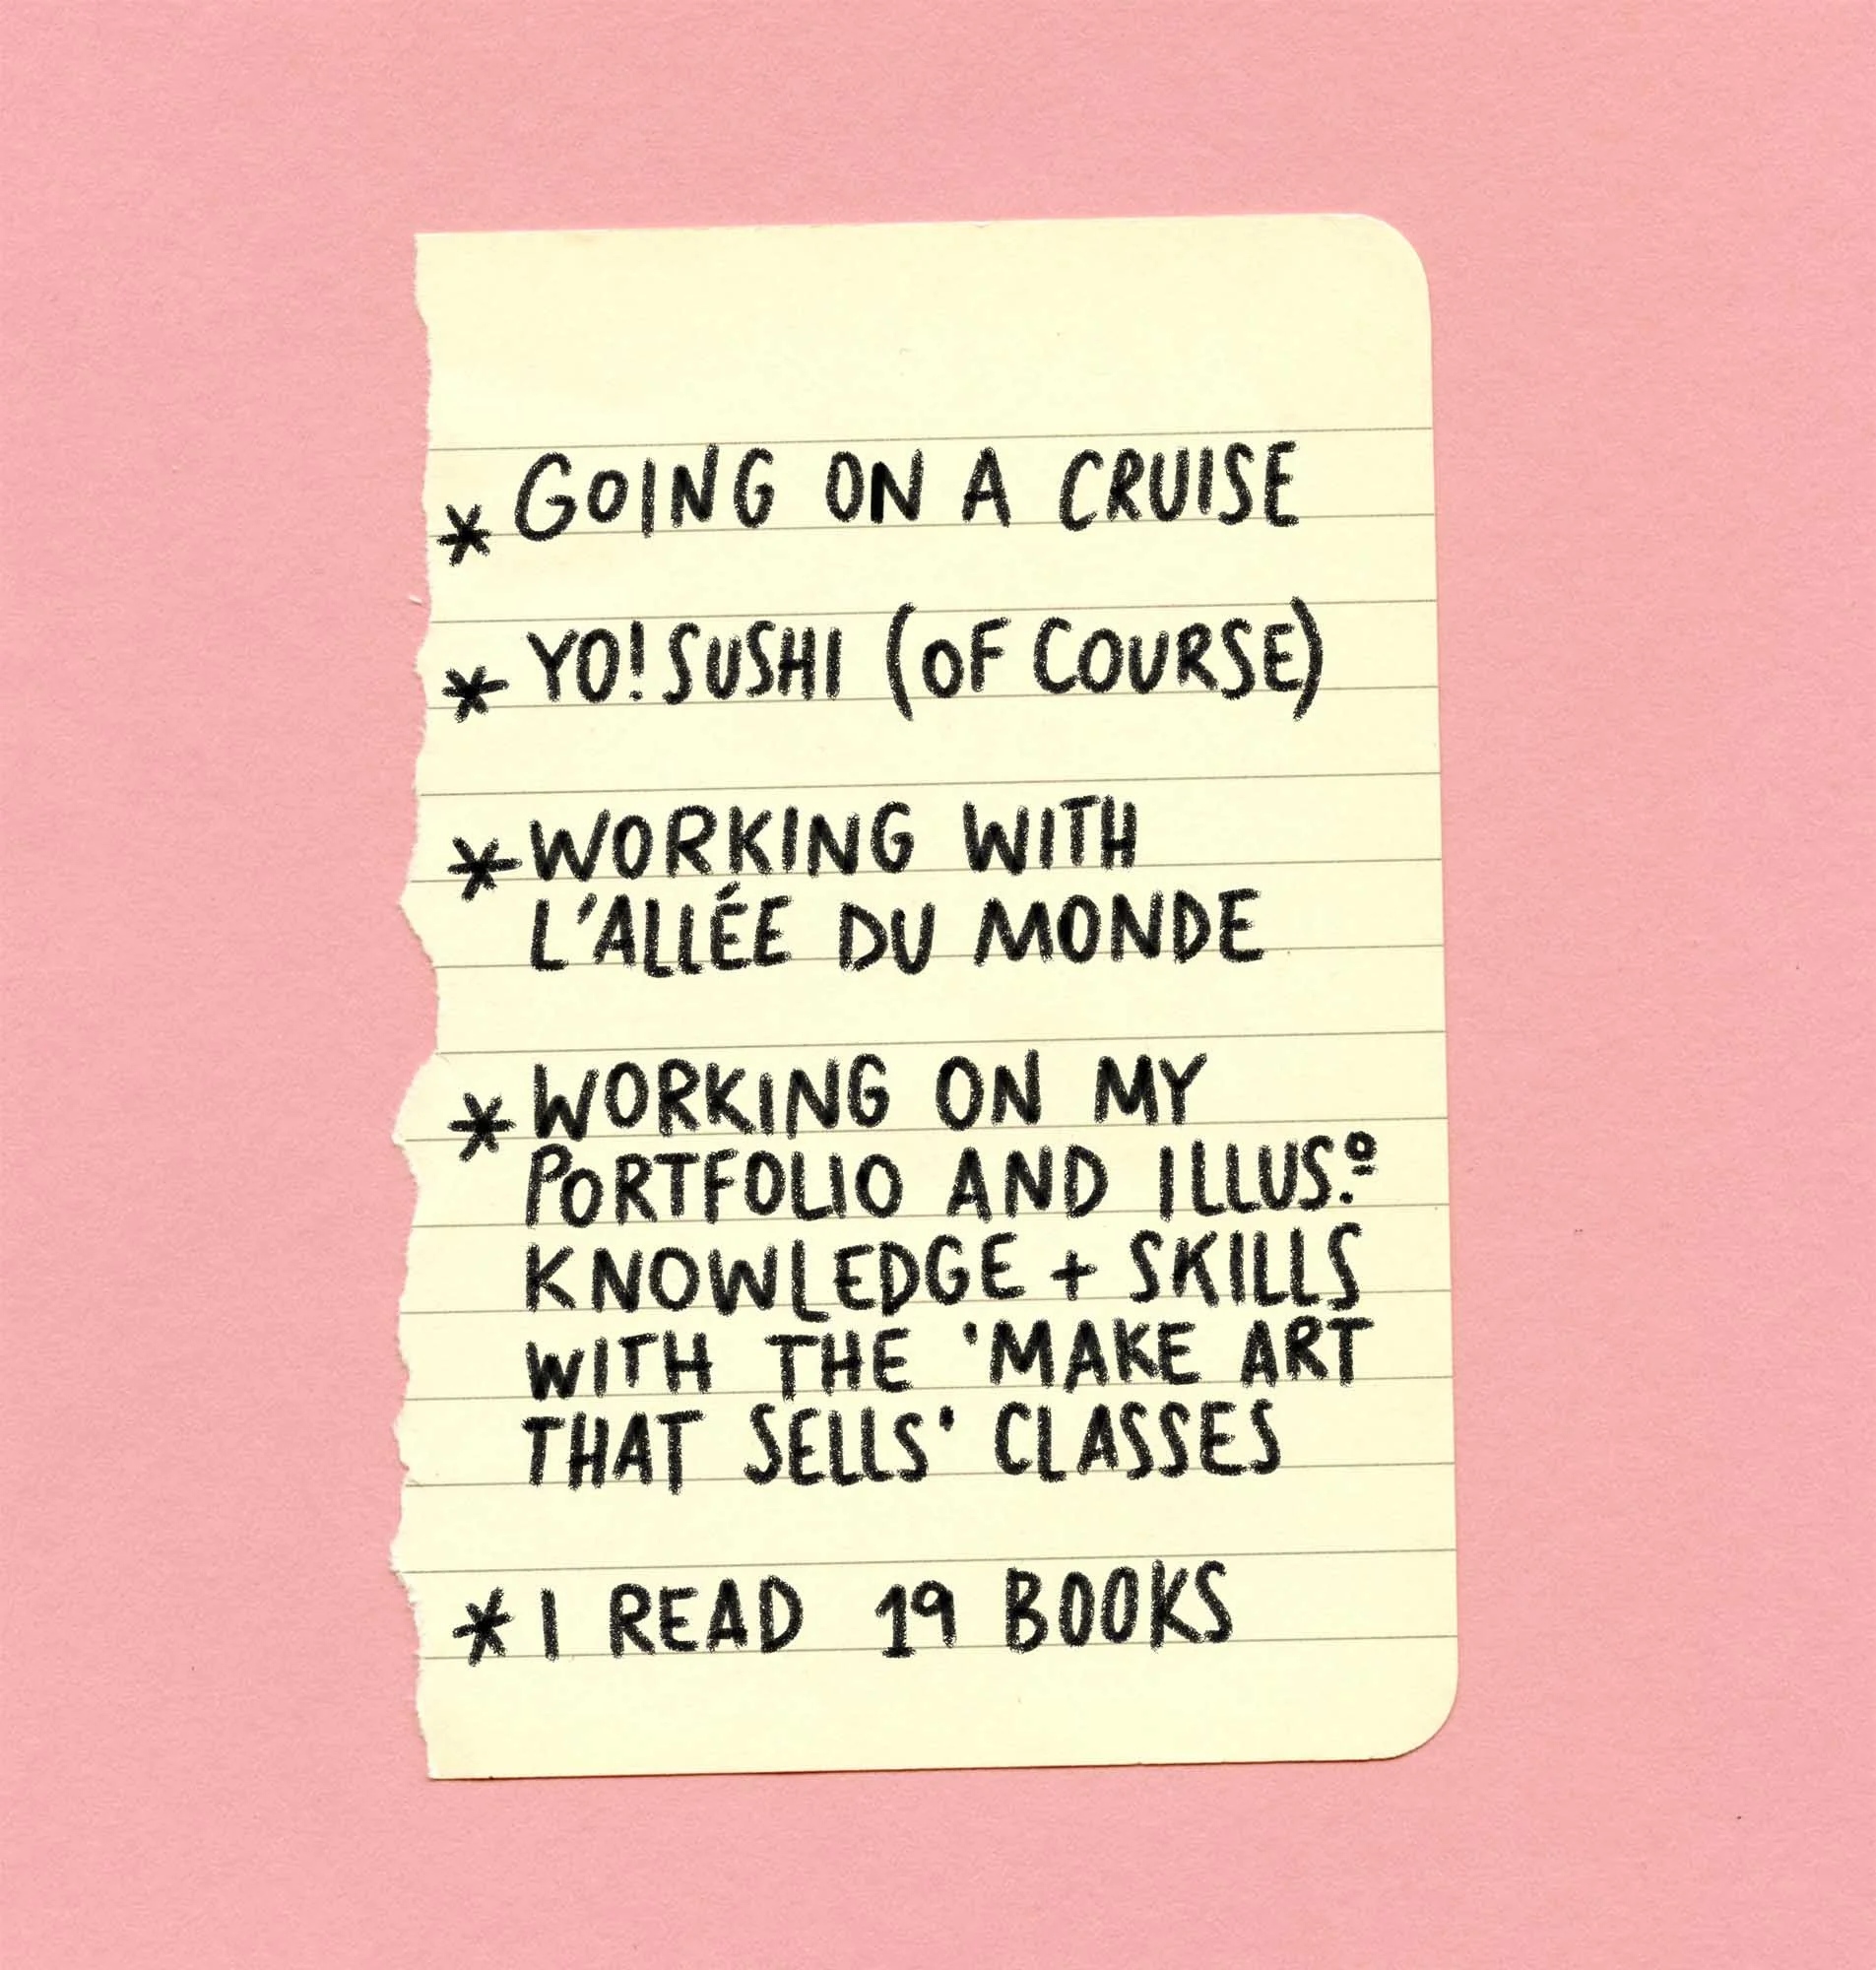 * GOING ON A CRUISE
* YO! SUSHI (OF COURSE)
* WORKING WITH
L'ALLÉE DU MONDE
* WORKING ON MY
PORTFOLIO AND ILLUS.º
KNOWLEDGE + SKILLS
WITH THE 'MAKE ART
THAT SELLS' CLASSES
* I READ 19 BOOKS